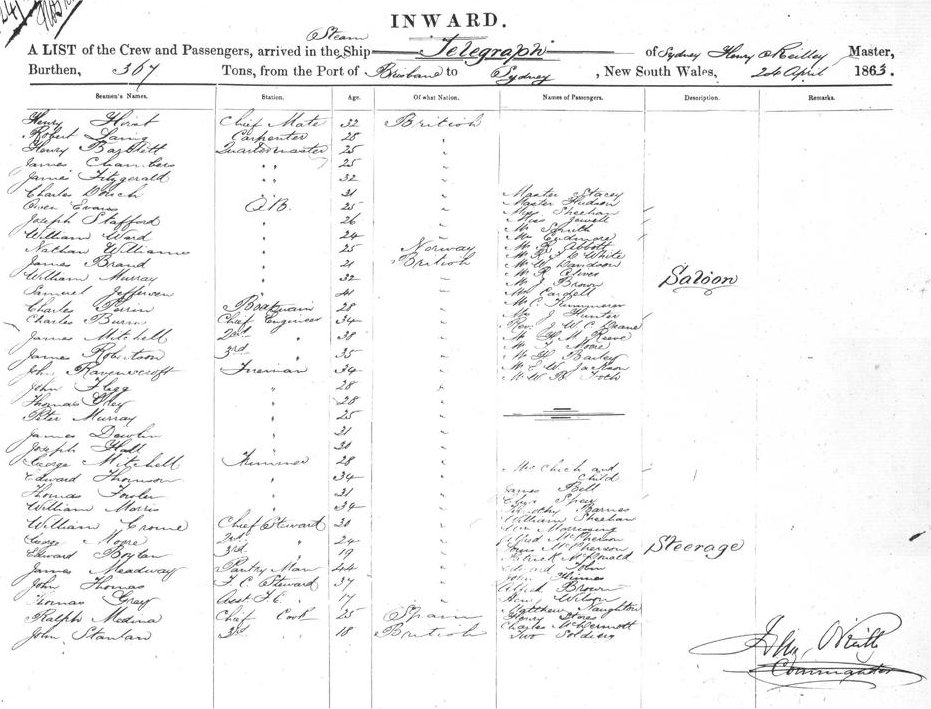 INWARD.
Steam
A LIST of the Crew and Passengers, arrived in the Ship Telegraph of Sydney Henry O'Reilley Master,
Burthen, 367 Tons, from the Port of Brisbane to Sydney, New South Wales, 24 April 1863.
Seamen's Names. Station. Age. Of what Nation. Names of Passengers. Description. Remarks.
Henry Chief Mate 32 British
Robert Laing Carpenter 28 "
Henry Bartlett Quartermaster 25 "
James Chambers " 25 "
James Fitzgerald " 32 "
Charles 31 " Master Stacey
Owen Evans A.B. 25 " Master Hudson
Joseph Stafford 26 " Miss Sheehan
William Ward 24 " Miss Jewell
Nathan Williams 25 Norway Mr Smith
James Brand 21 British Mr Abbott
William Murray 32 " Mr White
Samuel 41 " Mr W Davidson
Charles Boatswain 28 " Mr R Clives
Charles Burns Chief Engineer 34 " Mr J Brown
James Mitchell 2nd 38 " Mr
James Robertson 3rd 35 " Mr C
John Ravenscroft Fireman 34 " Mr J Hunter
John Flegg " 28 " Rev. J W C Deane
Thomas " 28 " Mr H M Reeve
Peter Murray " 25 " Mr Moore
James " 31 " Mr H Bailey
Joseph Hall " 30 " Mr E W Jackson
George Mitchell Trimmer 28 " Mr W B
Saloon
Edward Thomson " 34 " Mrs Chick and Child
Thomas " 31 " James Bell
William Morris " 34 " Timothy Barnes
William Crome Chief Stewart 30 " William Sheehan
George Moore 2nd 24 " Alfred McPherson
Edward Boylan 3rd 19 " McPherson
James Meadway Pantry Man 44 " Patrick McDonald
John Thomas F. C. Steward 37 " Edward John
Thomas Gray Asst F.C. 17 " John
Ralph Medina Chief Cook 25 Spain Alfred Brown
John Stanlan 3rd 18 British Wilson
Matthew Naughton
Henry
Charles McDermott
Two Soldiers
Steerage
Commander